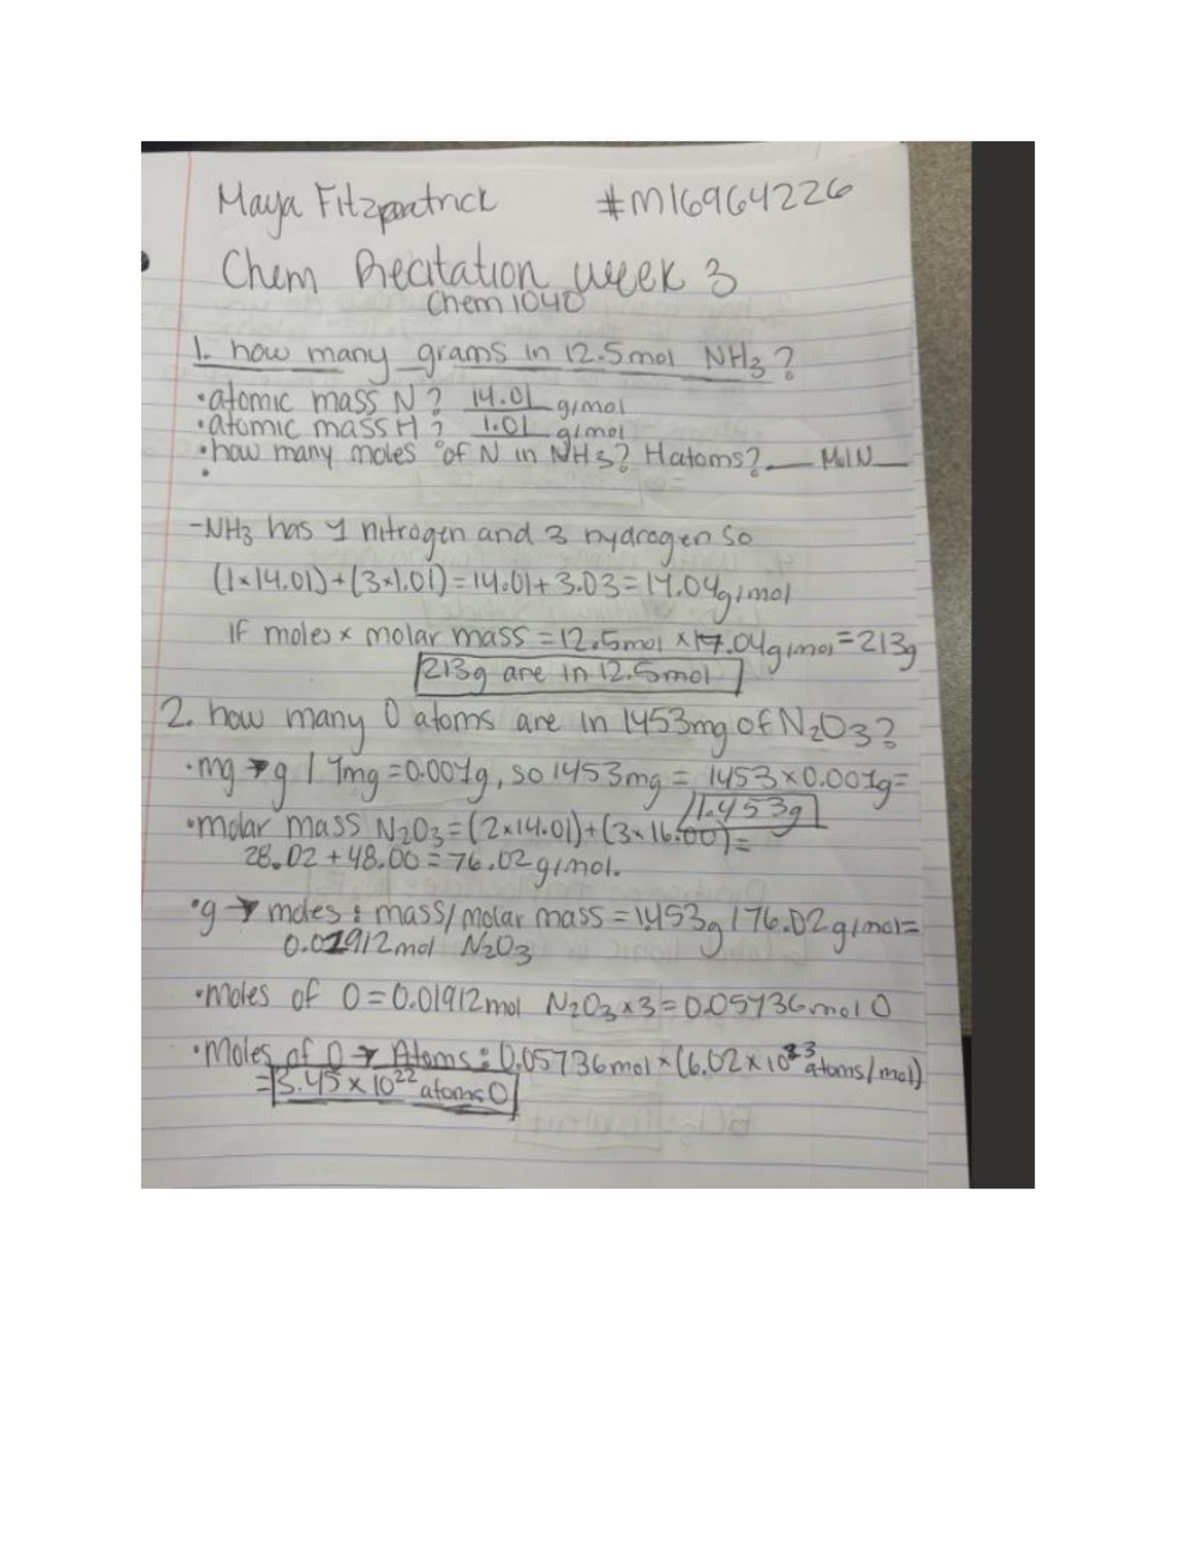 Maya Fitzpatrick #M16964226
Chem Recitation week 3
Chem 1040
1. how many grams in 12.5mol NH₃?
•atomic mass N? 14.01 g/mol
•atomic mass H? 1.01 g/mol
•how many moles of N in NH₃? H atoms? ___ Mol N ___
•
-NH₃ has 1 nitrogen and 3 hydrogen so
(1×14.01)+(3×1.01)=14.01+3.03=17.04g/mol
If moles × molar mass = 12.5mol ×17.04g/mol=213g
213g are in 12.5mol
2. how many O atoms are in 1453mg of N₂O₃?
•mg→g / 1mg=0.001g, so 1453mg = 1453×0.001g=
1.453g
•molar mass N₂O₃=(2×14.01)+(3×16.00)=
28.02+48.00=76.02g/mol.
•g → moles: mass/molar mass = 1.453g / 76.02g/mol=
0.01912mol N₂O₃
•moles of O=0.01912mol N₂O₃×3=0.05736mol O
•Moles of O → Atoms: 0.05736mol×(6.02×10²³atoms/mol)
=3.45×10²² atoms O